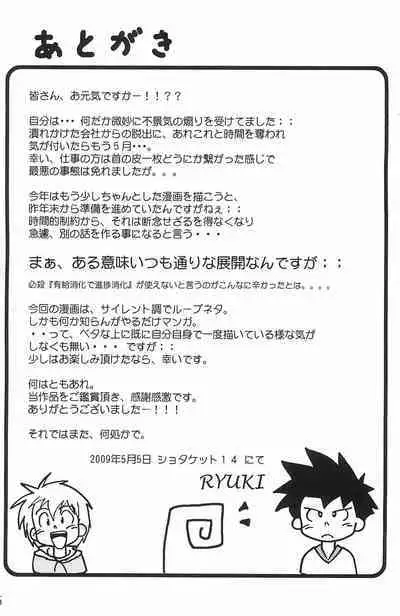 あとがき
皆さん、お元気ですかー！！？？
自分は・・・何だか微妙に不景気の煽りを受けてました；；
潰れかけた会社からの脱出に、あれこれと時間を奪われ
気が付いたらもう５月・・・。
幸い、仕事の方は首の皮一枚どうにか繋がった感じで
最悪の事態は免れましたが。。。
今年はもう少しちゃんとした漫画を描こうと、
昨年末から準備を進めていたんですがねぇ；；
時間的制約から、それは断念せざるを得なくなり
急遽、別の話を作る事になると言う・・・
まぁ、ある意味いつも通りな展開なんですが；；
必殺『有給消化で進捗消化』が使えないと言うのがこんなに辛かったとは。。。。
今回の漫画は、サイレント調でループネタ。
しかも何か知らんがやるだけマンガ。
・・って、ベタな上に既に自分自身で一度描いている様な気が
しなくも無い・・・ですが；；
少しはお楽しみ頂けたなら、幸いです。
何はともあれ。
当作品をご鑑賞頂き、感謝感激です。
ありがとうございましたー！！！
それではまた、何処かで。
2009年5月5日 ショタケット１４ にて
RYUKI